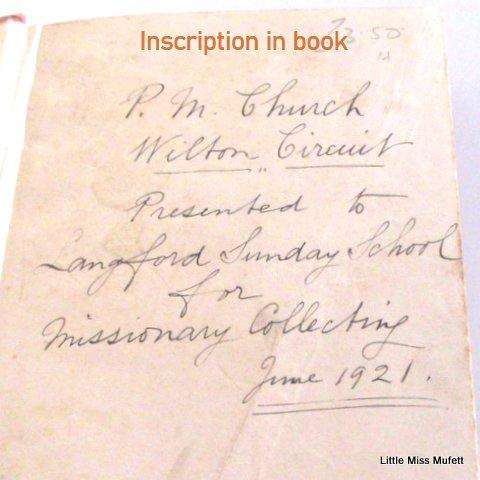 Inscription in book
P. M. Church
Wilton Circuit
Presented to
Langford Sunday School
for
Missionary Collecting
June 1921.
Little Miss Mufett